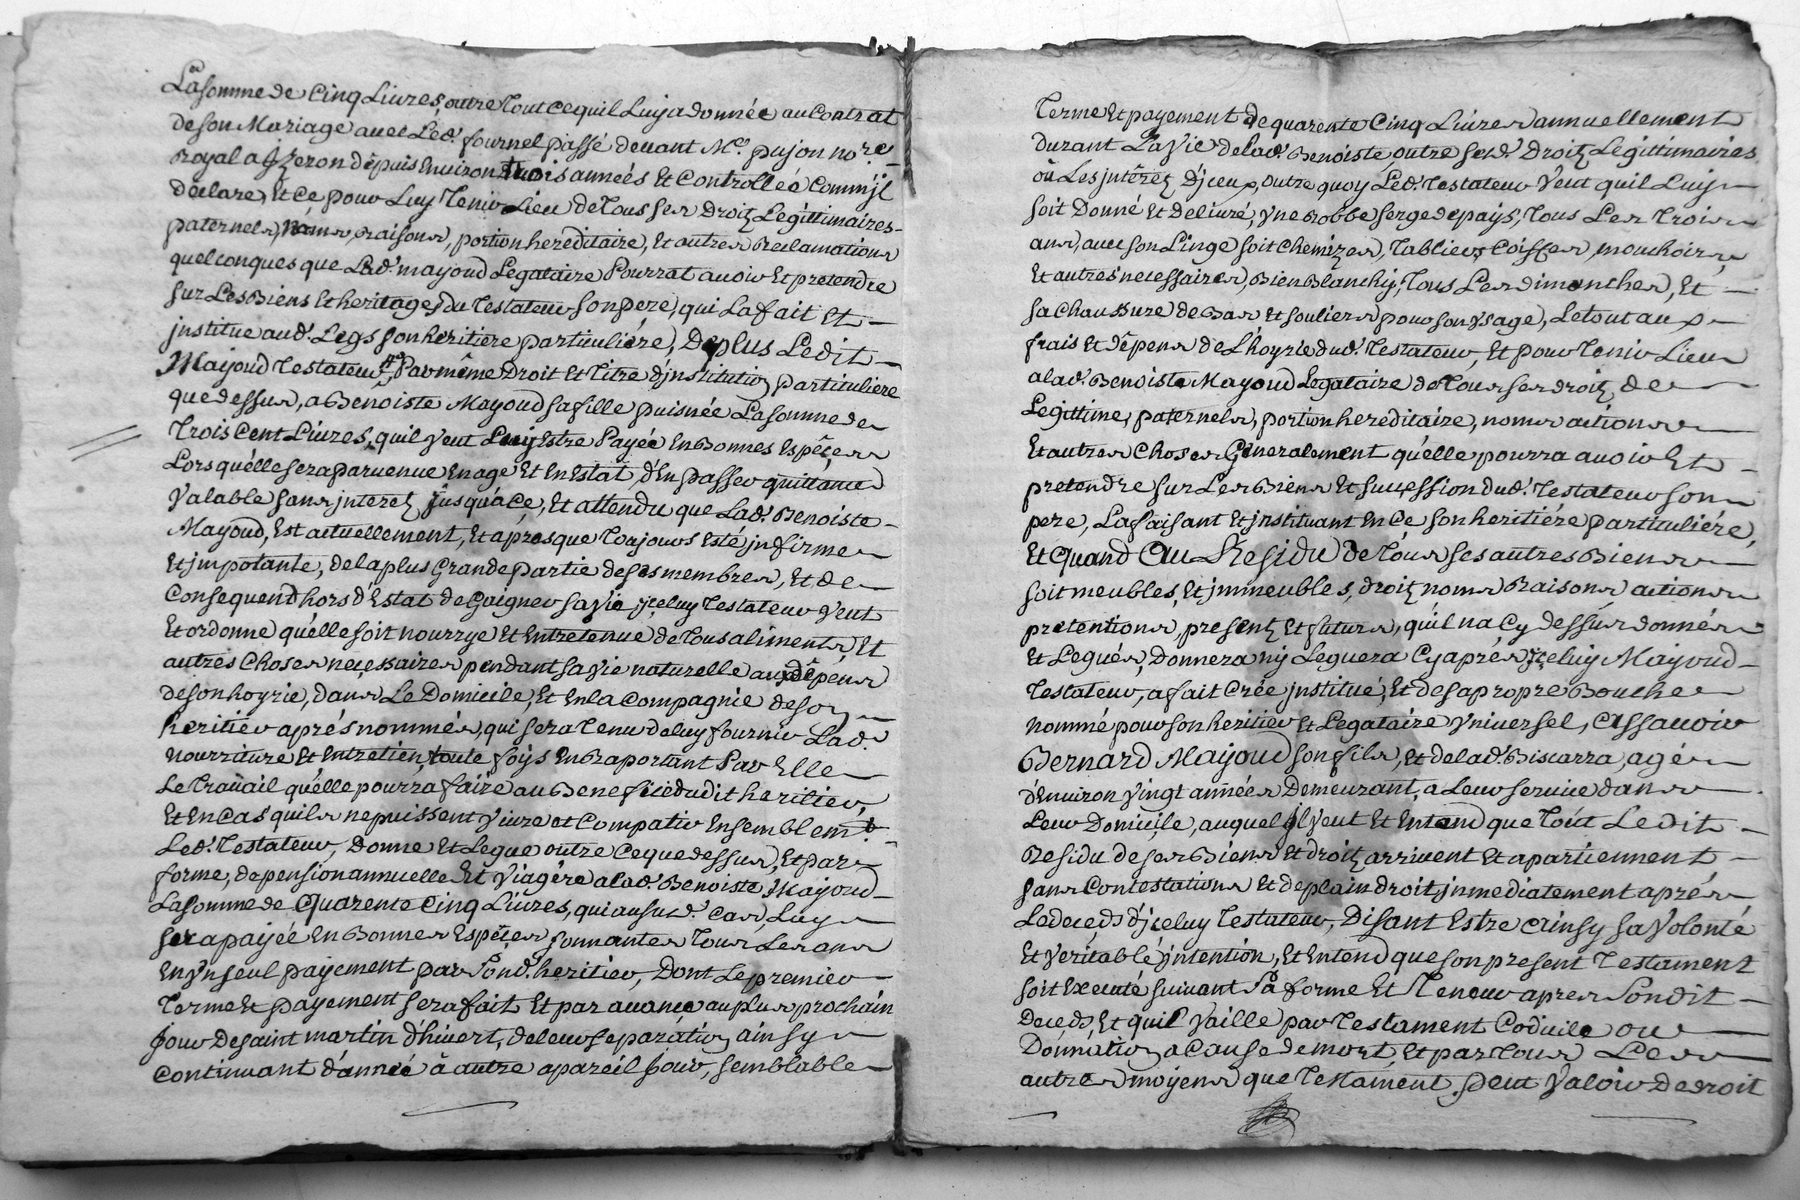 La somme de Cinq Livres, outre tout ce quil Luy a donnée au Contrat
de son Mariage avec Led. fournel passé devant Me. pujon nore.
royal a Izeron depuis Environ trois années Et Controllée Comm'jl
déclare, Et Ce pour Luy Tenir Lieu de Tous ses Droitz Legittimaires
paternels, noms, raisons, portion hereditaire, Et autres Reclamations
quelconques que Lad. mayoud Legataire Pourrat avoir Et pretendre
sur Les Biens Et heritages du Testateur son pere, qui La fait Et
jnstitue aud. Legs son heritiere particuliére, De plus Ledit
Mayoud Testateur, Par même Droit Et Titre d'jnstitution particuliere
que dessus, a Benoiste Mayoud sa fille puisnée La somme de
Trois Cent Livres, quil veut Luy Estre Payée En Bonnes Espéçes
Lors qu'élle sera parvenue En age Et En Estat, d'En passer quittance
valable sans jnteretz jusqu'áçe, Et attendu que Lad. Benoiste
Mayoud, Est actuellement, Et a présque Toujours Esté jnfirme
Et jmpotante, de la plus Grande partie de ses membres, Et de
Consequend hors d'Estat de Gaigner sa Vie, jçeluy Testateur veut
Et ordonne qu'élle soit nourrye Et Entretenue de Tous aliments, Et
autres Choses neçessaires pendant sa vie naturelle aux dépens
de son hoyrie, dans Le Domicile, Et En la Compagnie de son
heritiér aprés nommés, qui sera Tenu de luy fournir Lad.
nourriture Et Entretien, toute foys En Raportant Par Elle
Le Travail qu'élle pourra faire au Benefice dudit heritier,
Et En Cas quils ne puissent vivre et Compatir Ensemblemt.
Led. Testateur, Donne Et Legue outre Ce que dessus, Et par
forme, de pension annuelle Et Viagére a lad. Benoiste Mayoud
La somme de Quarente Cinq Livres, qui au susd. Cas, Luy
sera payée En Bonnes Espéçes sonnantes Tous Les ans
En vn seul payement par Sond. heritier, Dont Le premier
Terme Et payement sera fait Et par avance au plus prochain
jour de saint martin d'hivert, de leur separation ainsy
Continuant d'année à autre a pareil jour, semblable
Terme Et payement de quarente Cinq Livres annuellement
durant La Vie de lad. Benoiste outre sesd. Droitz Legittimaires
où Les jntêretz d'jceux, outre quoy Led. Testateur Veut quil Luy
soit Donné Et Delivré, vne Robbe serge de pays, Tous Les Trois
ans, avec son Linge soit Chemizes, Tabliers Coiffes, mouchoirs
Et autres necessaires, Bien Blanchy, Tous Les dimanches, Et
sa Chaussure de Bas Et souliers pour son vsage, Le tout aux
frais Et dépens de L'hoyrie dud. Testateur, Et pour Tenir Lieu
a lad. Benoiste Mayoud Legataire de Tous ses droitz de
Legittime, paternels, portion hereditaire, noms actions
Et autres Choses Généralement qu'élle pourra avoir Et
pretendre sur Les Biens Et sucçession dud. Testateur son
pere, La faisant Et jnstituant En Ce son heritiére particuliére,
Et Quand Au Residu de Tous ses autres Biens
soit meubles, Et jmmeubles, droitz noms Raisons, actions
pretentions, presentz Et futurs, qu'il na Cy dessus donnés
Et Legués, Donnera ny Leguera Cy aprés jçeluy Mayoud
Testateur, a fait Crée jnstitué, Et de sa propre Bouche
nommé pour son heritier Et Legataire Vniversel, Assavoir
Bernard Mayoud son fils, Et de lad. Biscarra, agé
d'Environ vingt années Demeurant, a Leur service dans
Leur Domicile, auquel jl veut Et Entend que Tout Ledit
Residu de ses Biens Et droitz arrivent Et apartiennent
sans Contestations Et de plain droit jnmediatement aprés
Le deceds d'jceluy Testateur, Disant Estre Ainsy sa Volonté
Et Veritable jntention, Et Entend que son present Testament
soit Executé suivant Sa forme Et Teneur apres Son dit
Deceds, Et quil Vaille par Testament Codicile ou
Donnation a Cause de mort, Et par Tous Les
autres moyens que Testament peut Valoir de droit